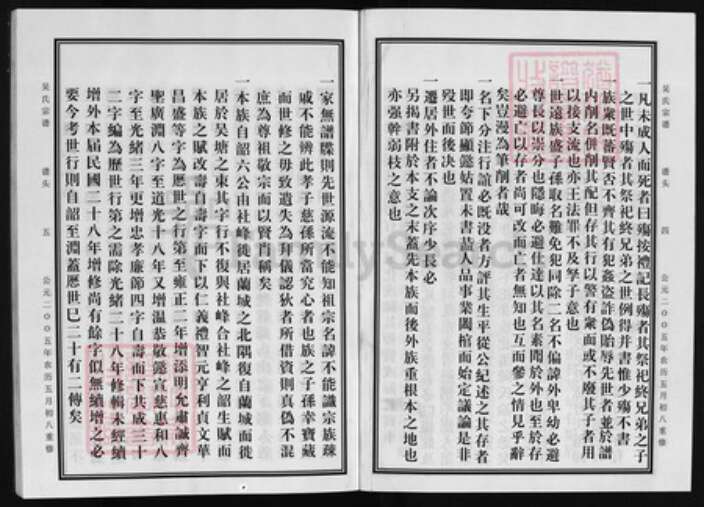 吴氏宗谱 谱头 四 公元二00五年农历五月初八重修
一凡未成人而死者曰殤按禮記長殤者其祭祀終兄弟之子
之世中殤者其祭祀終兄弟之世例得并書惟少殤不書
一族衆既蕃賢否不齊其有犯姦盜詐偽貽辱先世者並於譜
内削名併削其配但存其行以警有衆而或不廢其子者用
以接支流也亦王法罪不及孥子意也
一世遠族盛子孫取名難免犯同除二名不偏諱外卑幼必避
尊長以崇分也隱晦必避仕達以其名素聞於外也至於存
必避亡以存者尚可改而亡者無知也互而參之情見乎辭
矣豈漫為筆削者哉
一名下分注行誼必既没者方評其生平從公紀述之其存者
即夸節顯懿姑置未書蓋人品事業闔棺而始定議論是非
殁世而後决也
一遷居外住者不論次序少長必
另揭書附於本支之末蓋先本族而後外族重根本之地也
亦强幹弱枝之意也
一家無譜牒則先世源流不能知祖宗名諱不能識宗族疎
戚不能辨此孝子慈孫所當究心者也族之子孫幸寶藏
而世修之毋致遺失為拜儀認狄者所借資則真偽不混
庶為尊祖敬宗而以賢肖稱矣
一本族自韶六公由社峰徙居蘭城之北隅復自蘭城而徙
居於吴塘之東其字行不復與社峰合社峰之韶生賦而
本族之賦改壽自壽字而下以仁義禮智元亨利貞文華
昌盛等字為歷世之行第至雍正二年增添明允肅誠齊
聖廣淵八字至道光十八年又增温恭敬懿宣慈惠和八
字至光緒三年更增忠孝廉節四字自壽而下共成三十
二字編為歷世行第之需除光緒二十八年修輯未經續
增外本届民國二十八年增修尚有餘字似無續增之必
要今考世行則自韶至淵蓋歷世已二十有二傳矣
吴氏宗谱 谱头 五 公元二00五年农历五月初八重修